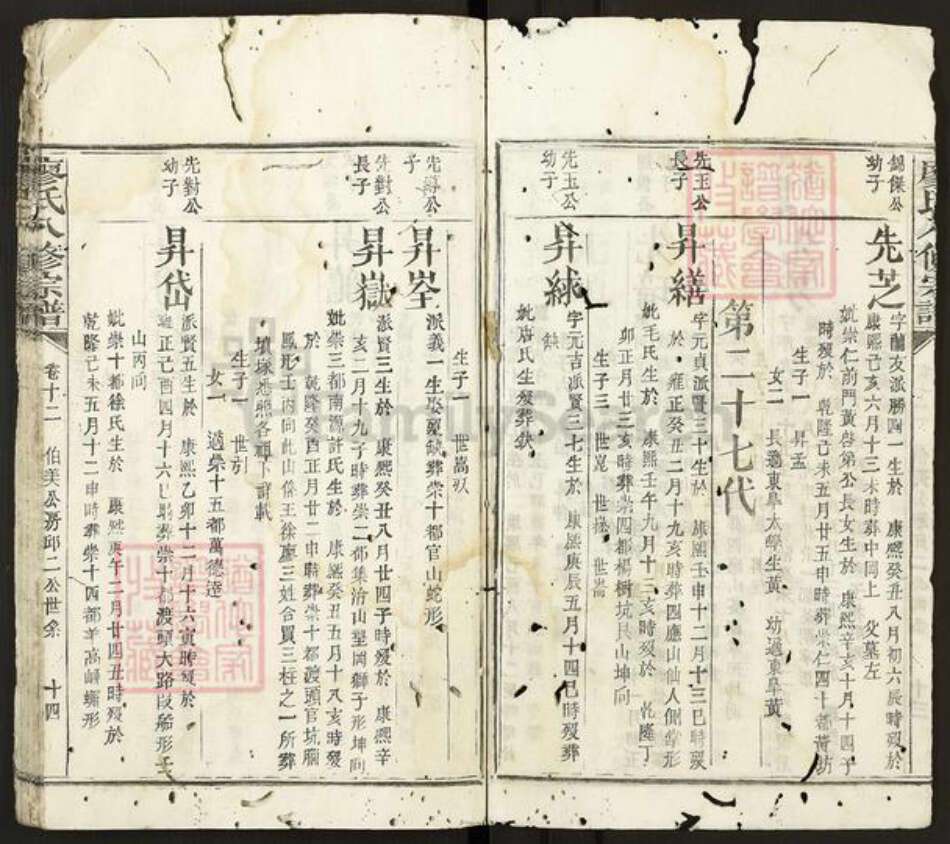 錦傑公
幼子
先芝
字蘭友派勝四一生於 康熙癸丑八月初六辰時歿於
康熙己亥六月十三未時葬中岡上 父墓左
妣崇仁前門黃啓弟公長女生於 康熙辛亥十月十四子
時歿於 乾隆己未五月廿五申時葬崇仁四十都
生子一 昇孟
女二 長適東阜太學生黃 幼適東阜黃
第二十七代
先玉公
長子
昇繕
字元貞派賢三十生於 康熙壬申十二月十三巳時歿
於 雍正癸丑二月十九亥時葬四應山仙人側掌形
妣毛氏生於 康熙壬午九月十三亥時歿於 乾隆丁
卯正月廿三亥時葬崇四都楊樹坑艮山坤向
生子三 世嵬 世 世崙
先玉公
幼子
昇絿
字元吉派賢三七生於 康熙庚辰五月十四巳時歿葬
缺
妣唐氏生歿葬缺
先 公
子
昇峑
派義一生娶歿缺葬崇十都官山蛇形
生子一 世嵩
先對公
長子
昇嶽
派賢三生於 康熙癸丑八月廿四子時歿於 康熙辛
亥二月十九子時葬崇二都集治山壟岡獅子形坤向
妣崇三都南源許氏生於 康熙癸丑五月十八亥時歿
於 乾隆癸酉正月廿二申時葬崇十都渡頭官坑腦
鳳形壬丙向此山係王徐廖三姓合買三柱之一所葬
墳塚悉照各 下詳載
生子一 世引
女一 適崇十五都萬德逵
先對公
幼子
昇岱
派賢五生於 康熙乙卯十二月十六寅時歿於
雍正己酉四月十六 時葬崇十都渡頭大路 船形壬
山丙向
妣崇十都徐氏生於 康熙庚午二月廿四丑時歿於
乾隆己未五月十二申時葬崇十四都羊高 形
廖氏八修宗譜
卷十二 伯美公房邱二公世系 十四
FamilySearch